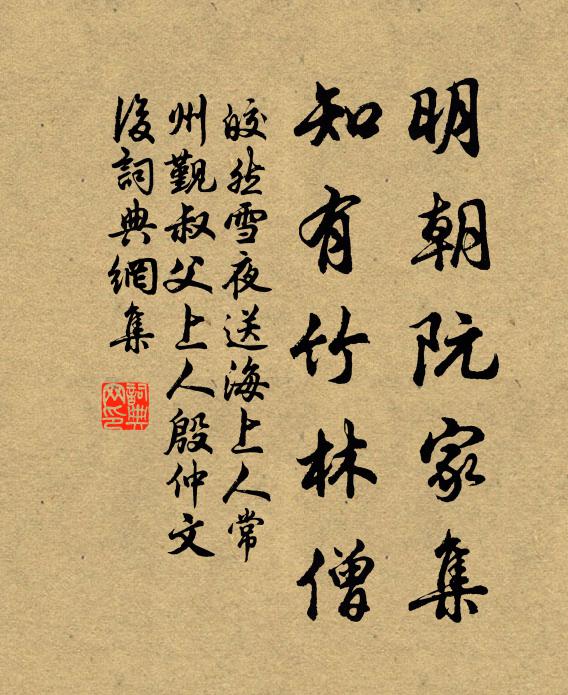 明朝阮家集
知有竹林僧
皎然雪夜送海上人常
州觐叔父上人殷仲文
後詞典網集
詞典网印